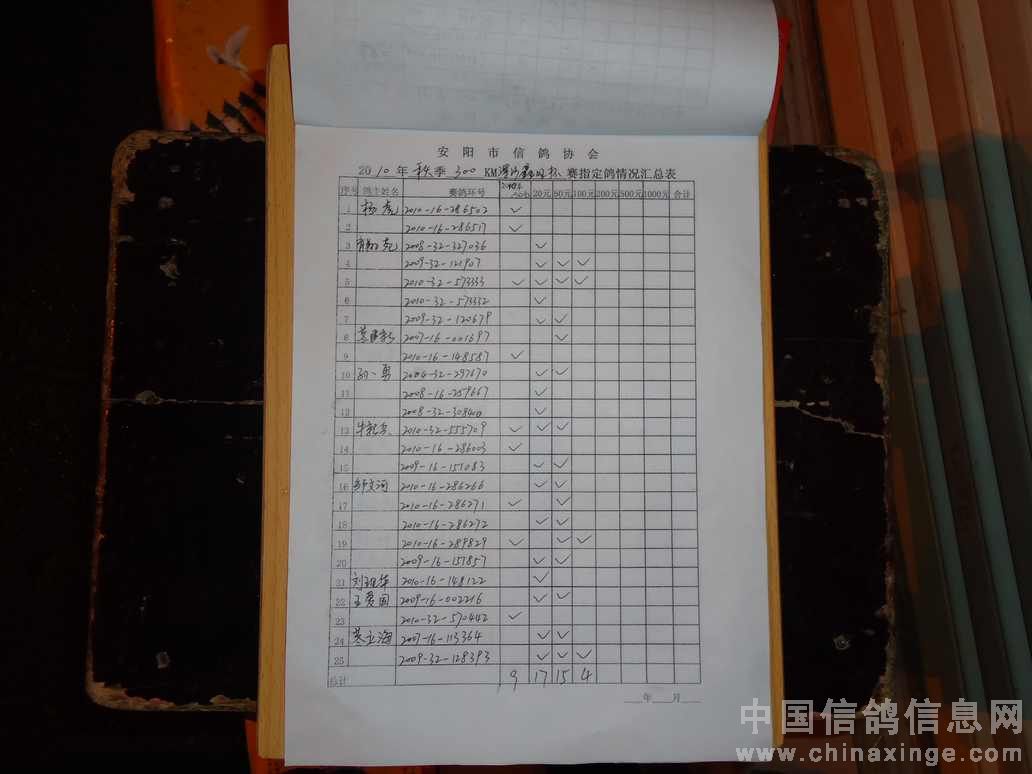 安阳市信鸽协会
2010年秋季300KM 赛指定鸽情况汇总表
序号 鸽主姓名 赛鸽环号 20元 50元 100元 200元 500元 1000元 合计
1 杨亮 2010-16-286502 ✓
2 2010-16-286517 ✓
3 2008-32-327036 ✓
4 2009-32-121907 ✓ ✓ ✓
5 2010-32-573333 ✓ ✓ ✓ ✓
6 2010-32-573332 ✓
7 2009-32-120679 ✓ ✓
8 2007-16-001697 ✓
9 2010-16-148587 ✓
10 孙勇 2004-32-297670 ✓ ✓
11 2008-16-259667 ✓
12 2008-32-308400 ✓
13 2010-32-555709 ✓ ✓ ✓
14 2010-16-286003 ✓
15 2009-16-151083 ✓ ✓
16 2010-16-286266 ✓ ✓
17 2010-16-286271 ✓ ✓
18 2010-16-286272 ✓ ✓
19 2010-16-289829 ✓ ✓ ✓
20 2009-16-157857 ✓ ✓
21 2010-16-148122 ✓
22 王爱国 2009-16-002216 ✓ ✓
23 2010-32-570442 ✓
24 2007-16-113364 ✓ ✓
25 2009-32-128393 ✓ ✓ ✓
9 17 15 4
年 月
中国信鸽信息网
www.chinaxinge.com